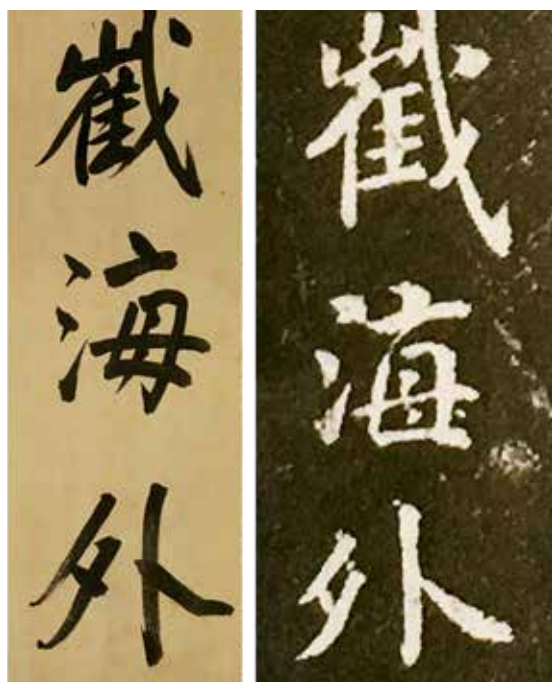 截海外
截海外